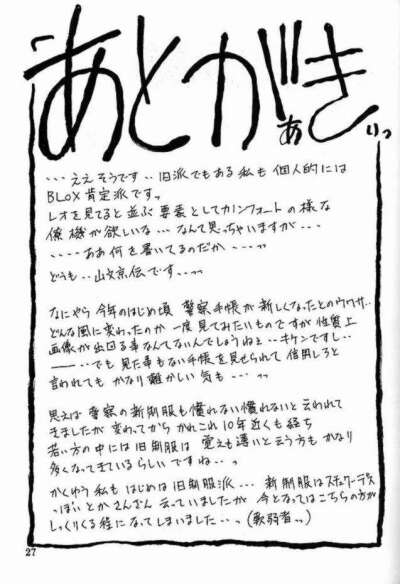 あとがき
ぁ
りっ
・・・ええそうです・・旧派でもある私も 個人的には
BLOX 肯定派ですっ
レオを見てると並ぶ要素としてカノンフォートの様な
僚機が欲しいな・・・なんて思っちゃいますが・・・
・・・・ああ何を書いてるのだか・・・っっ
どうも・・山文京伝です・・っっ
なにやら 今年のはじめ頃 警察手帳が新しくなったとのウワサ・・
どんな風に変わったのか 一度見てみたいものですが性質上
画像が出回る事なんてないんでしょうねぇ・・キケンですし・・
――・・でも見た事もない手帳を見せられて 信用しろと
言われても かなり難かしい気も・・・っっ
思えば 警察の新制服も慣れない慣れないと云われて
きましたが 変わってから かれこれ10年近くも経ち
若い方の中には旧制服は 覚えも薄いと云う方も かなり
多くなってきているらしいですね・・っ
かくゆう私も はじめは旧制服派・・・ 新制服はスチュワーデス
っぽいとかさんざん 云っていましたが 今となってはこちらの方が
しっくりくる程になってしまいました・・っ(軟弱者っっ)
27